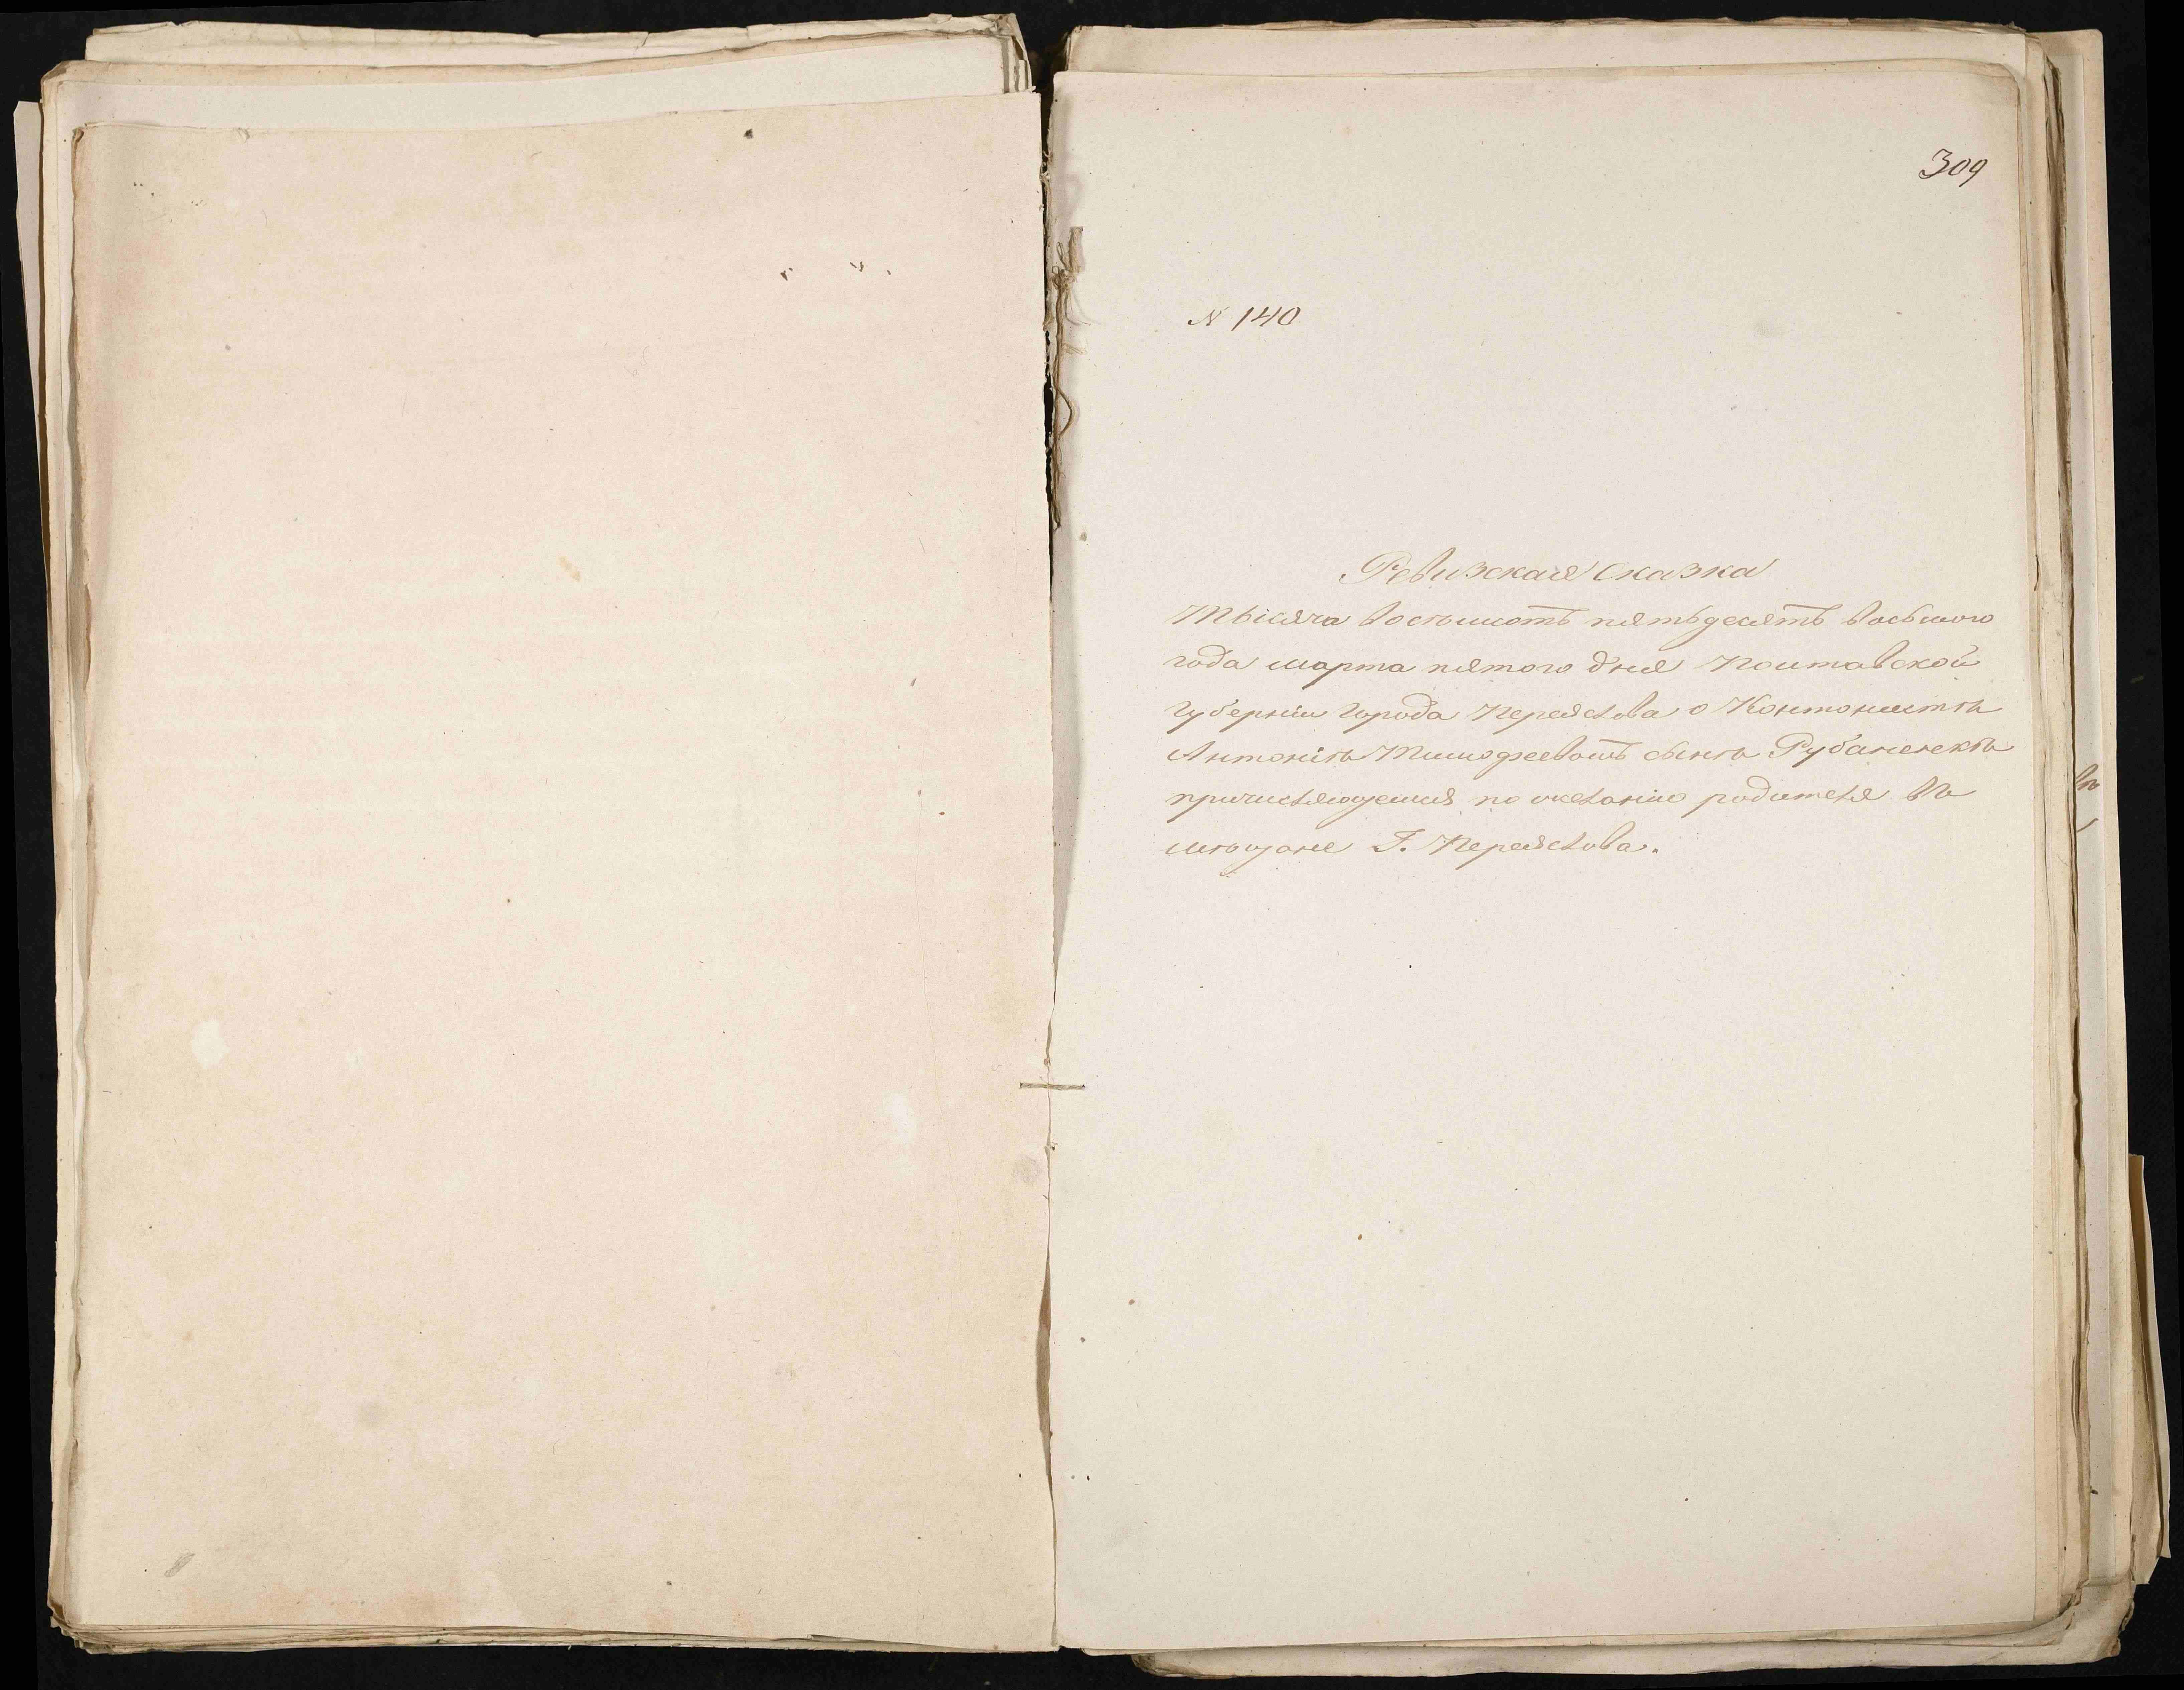 309
N 140
Ревизская Сказка
Тысяча восемьсотъ пятьдесятъ восьмого
года марта пятого дня Полтавской
губерніи города Переяслова о Контонистѣ
Антоніѣ Тимофеевомъ сынѣ Рубаненкѣ
причисляющемся по желанію родителя въ
мѣщане Г. Переяслова.